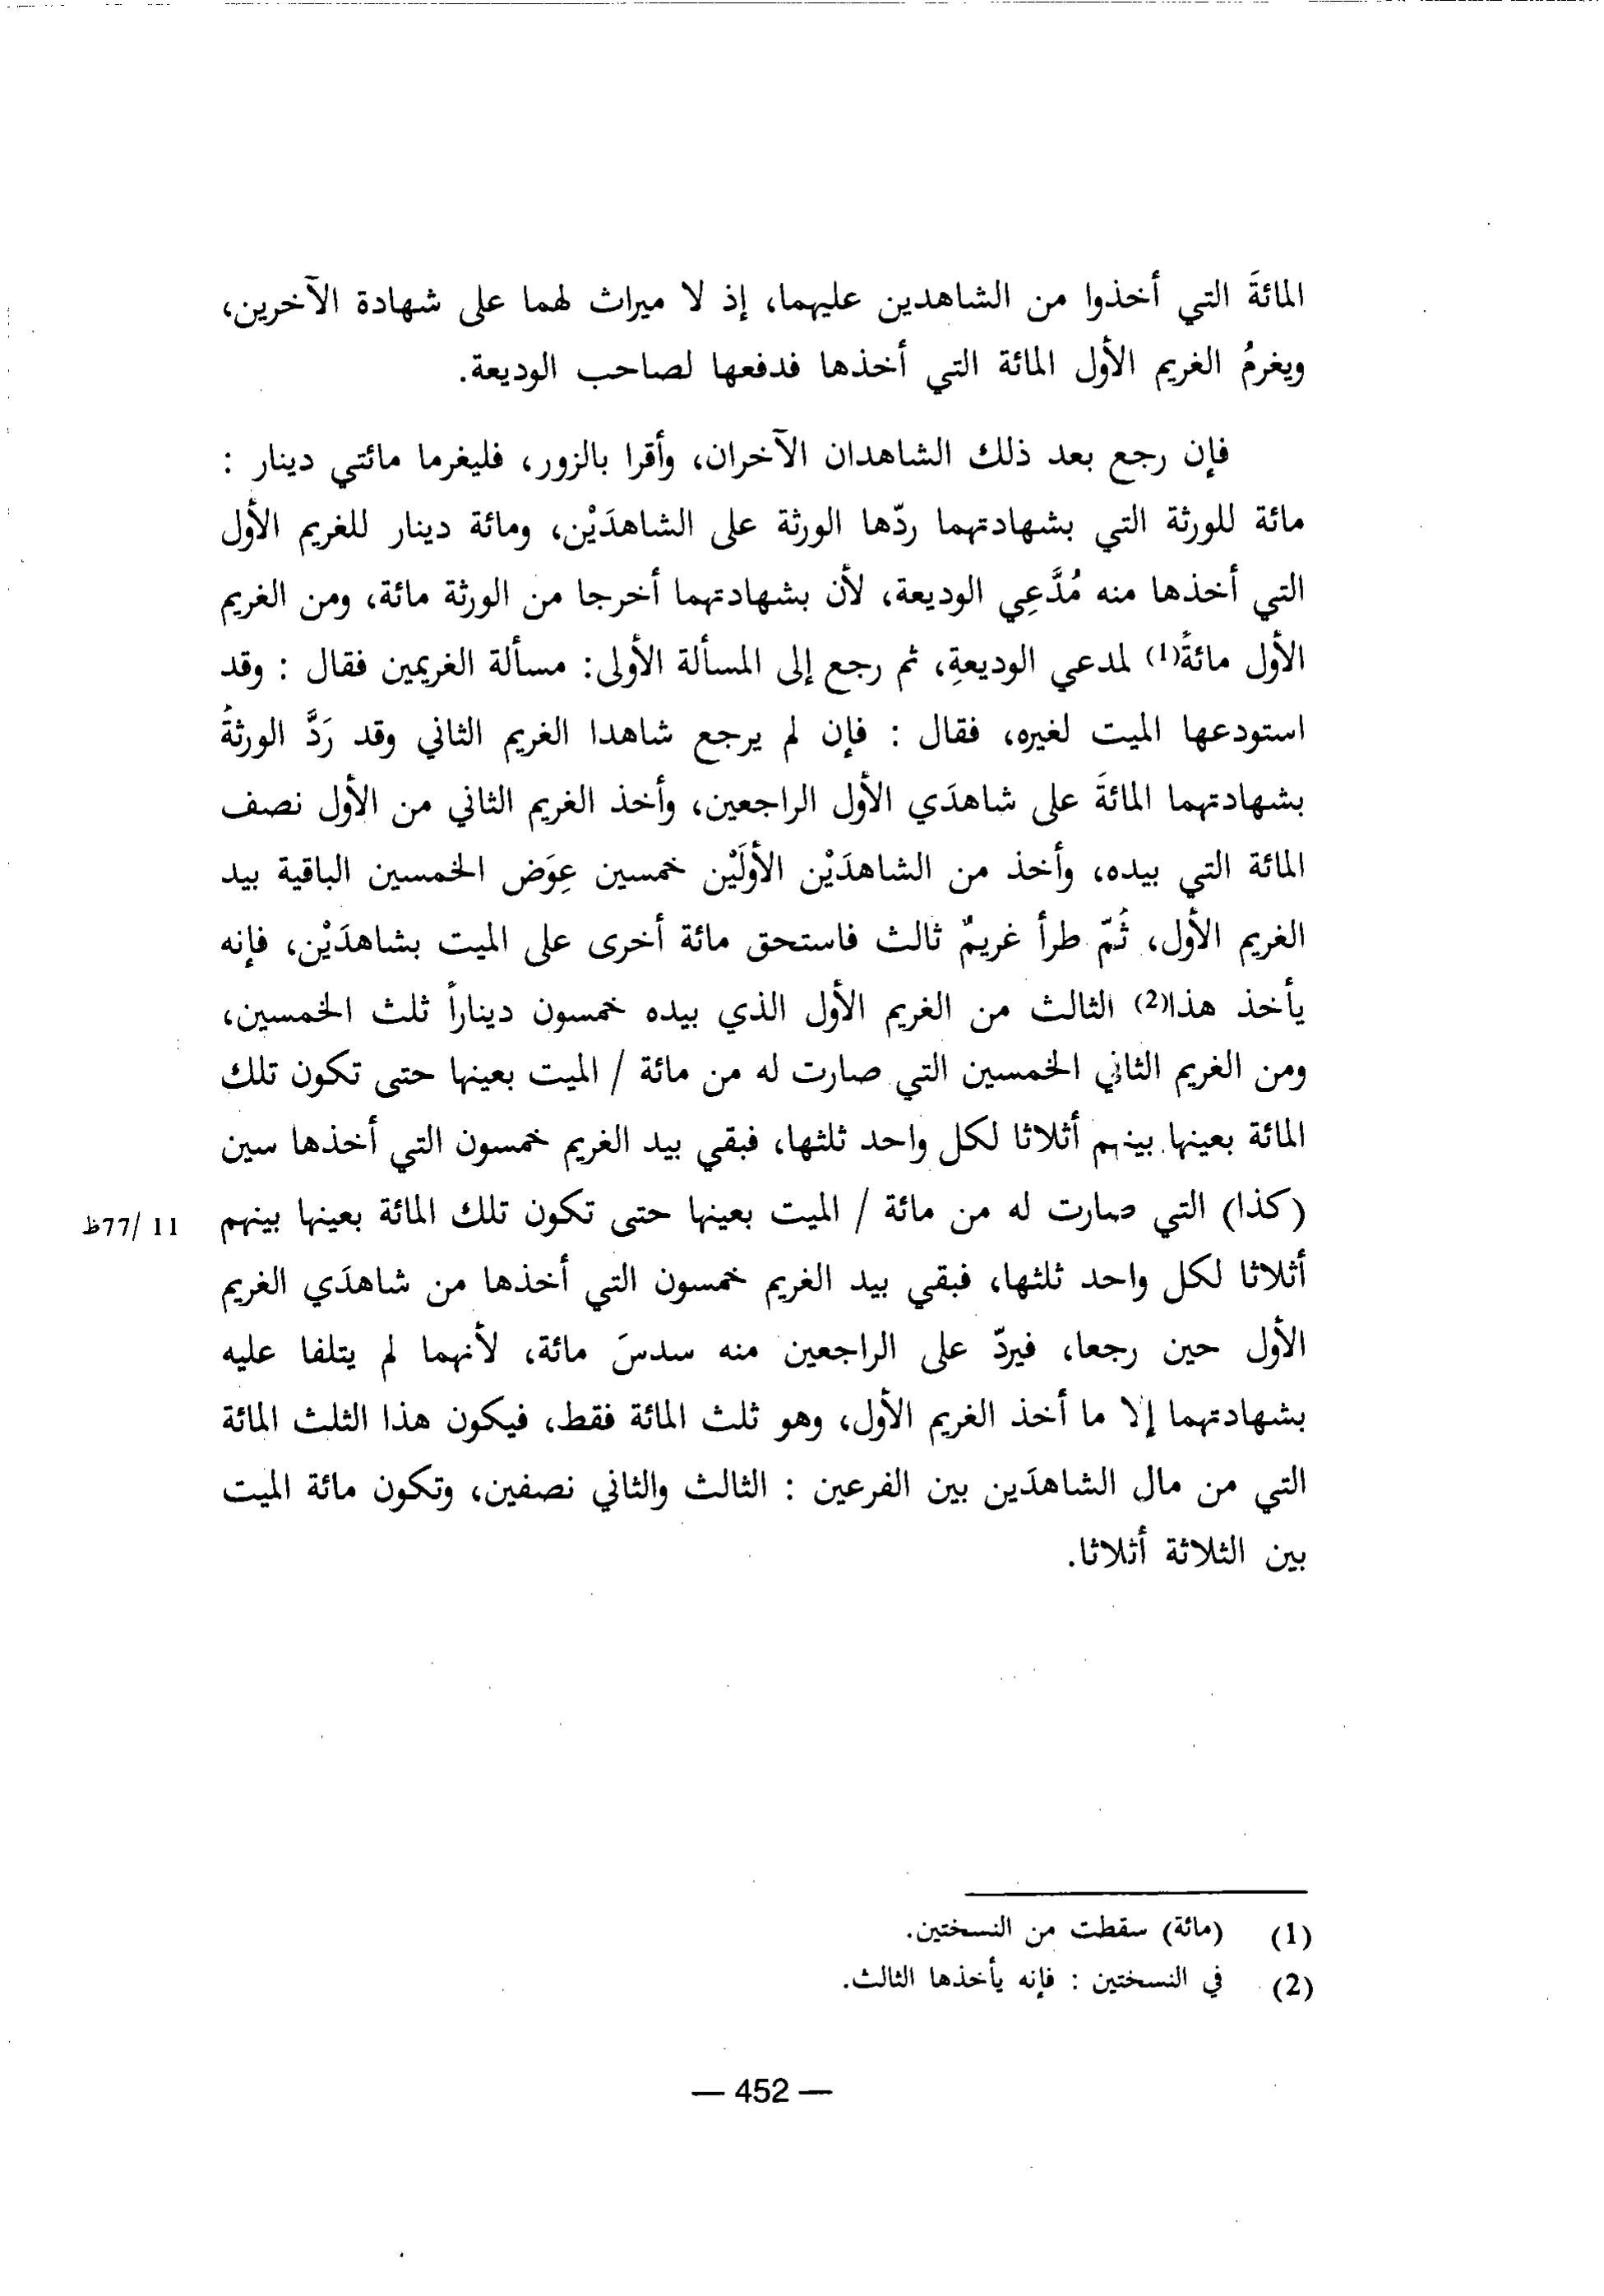 المائةَ التي أخذوا من الشاهدين عليهما، إذ لا ميراث لهما على شهادة الآخرين،
ويغرمُ الغريم الأول المائة التي أخذها فدفعها لصاحب الوديعة.
فإن رجع بعد ذلك الشاهدان الآخران، وأقرا بالزور، فليغرما مائتي دينار :
مائة للورثة التي بشهادتهما ردّها الورثة على الشاهدَيْن، ومائة دينار للغريم الأول
التي أخذها منه مُدَّعِي الوديعة، لأن بشهادتهما أخرجا من الورثة مائة، ومن الغريم
الأول مائةً(1) لمدعي الوديعةِ، ثم رجع إلى المسألة الأولى: مسألة الغريمين فقال : وقد
استودعها الميت لغيره، فقال : فإن لم يرجع شاهدا الغريم الثاني وقد رَدَّ الورثةُ
بشهادتهما المائةَ على شاهدَي الأول الراجعين، وأخذ الغريم الثاني من الأول نصف
المائة التي بيده، وأخذ من الشاهدَيْن الأولَيْن خمسين عِوَض الخمسين الباقية بيد
الغريم الأول، ثُمّ طرأ غريمٌ ثالث فاستحق مائة أخرى على الميت بشاهدَيْن، فإنه
يأخذ هذا(2) الثالث من الغريم الأول الذي بيده خمسون ديناراً ثلث الخمسين،
ومن الغريم الثاني الخمسين التي صارت له من مائة / الميت بعينها حتى تكون تلك
المائة بعينها بينهم أثلاثا لكل واحد ثلثها، فبقي بيد الغريم خمسون التي أخذها سين
(كذا) التي صارت له من مائة / الميت بعينها حتى تكون تلك المائة بعينها بينهم
11 /77ظ
أثلاثا لكل واحد ثلثها، فبقي بيد الغريم خمسون التي أخذها من شاهدَي الغريم
الأول حين رجعا، فيردّ على الراجعين منه سدسَ مائة، لأنهما لم يتلفا عليه
بشهادتهما إلا ما أخذ الغريم الأول، وهو ثلث المائة فقط، فيكون هذا الثلث المائة
التي من مال الشاهدَين بين الفرعين : الثالث والثاني نصفين، وتكون مائة الميت
بين الثلاثة أثلاثا.
(1) (مائة) سقطت من النسختين.
(2) في النسختين : فإنه يأخذها الثالث.
— 452 —